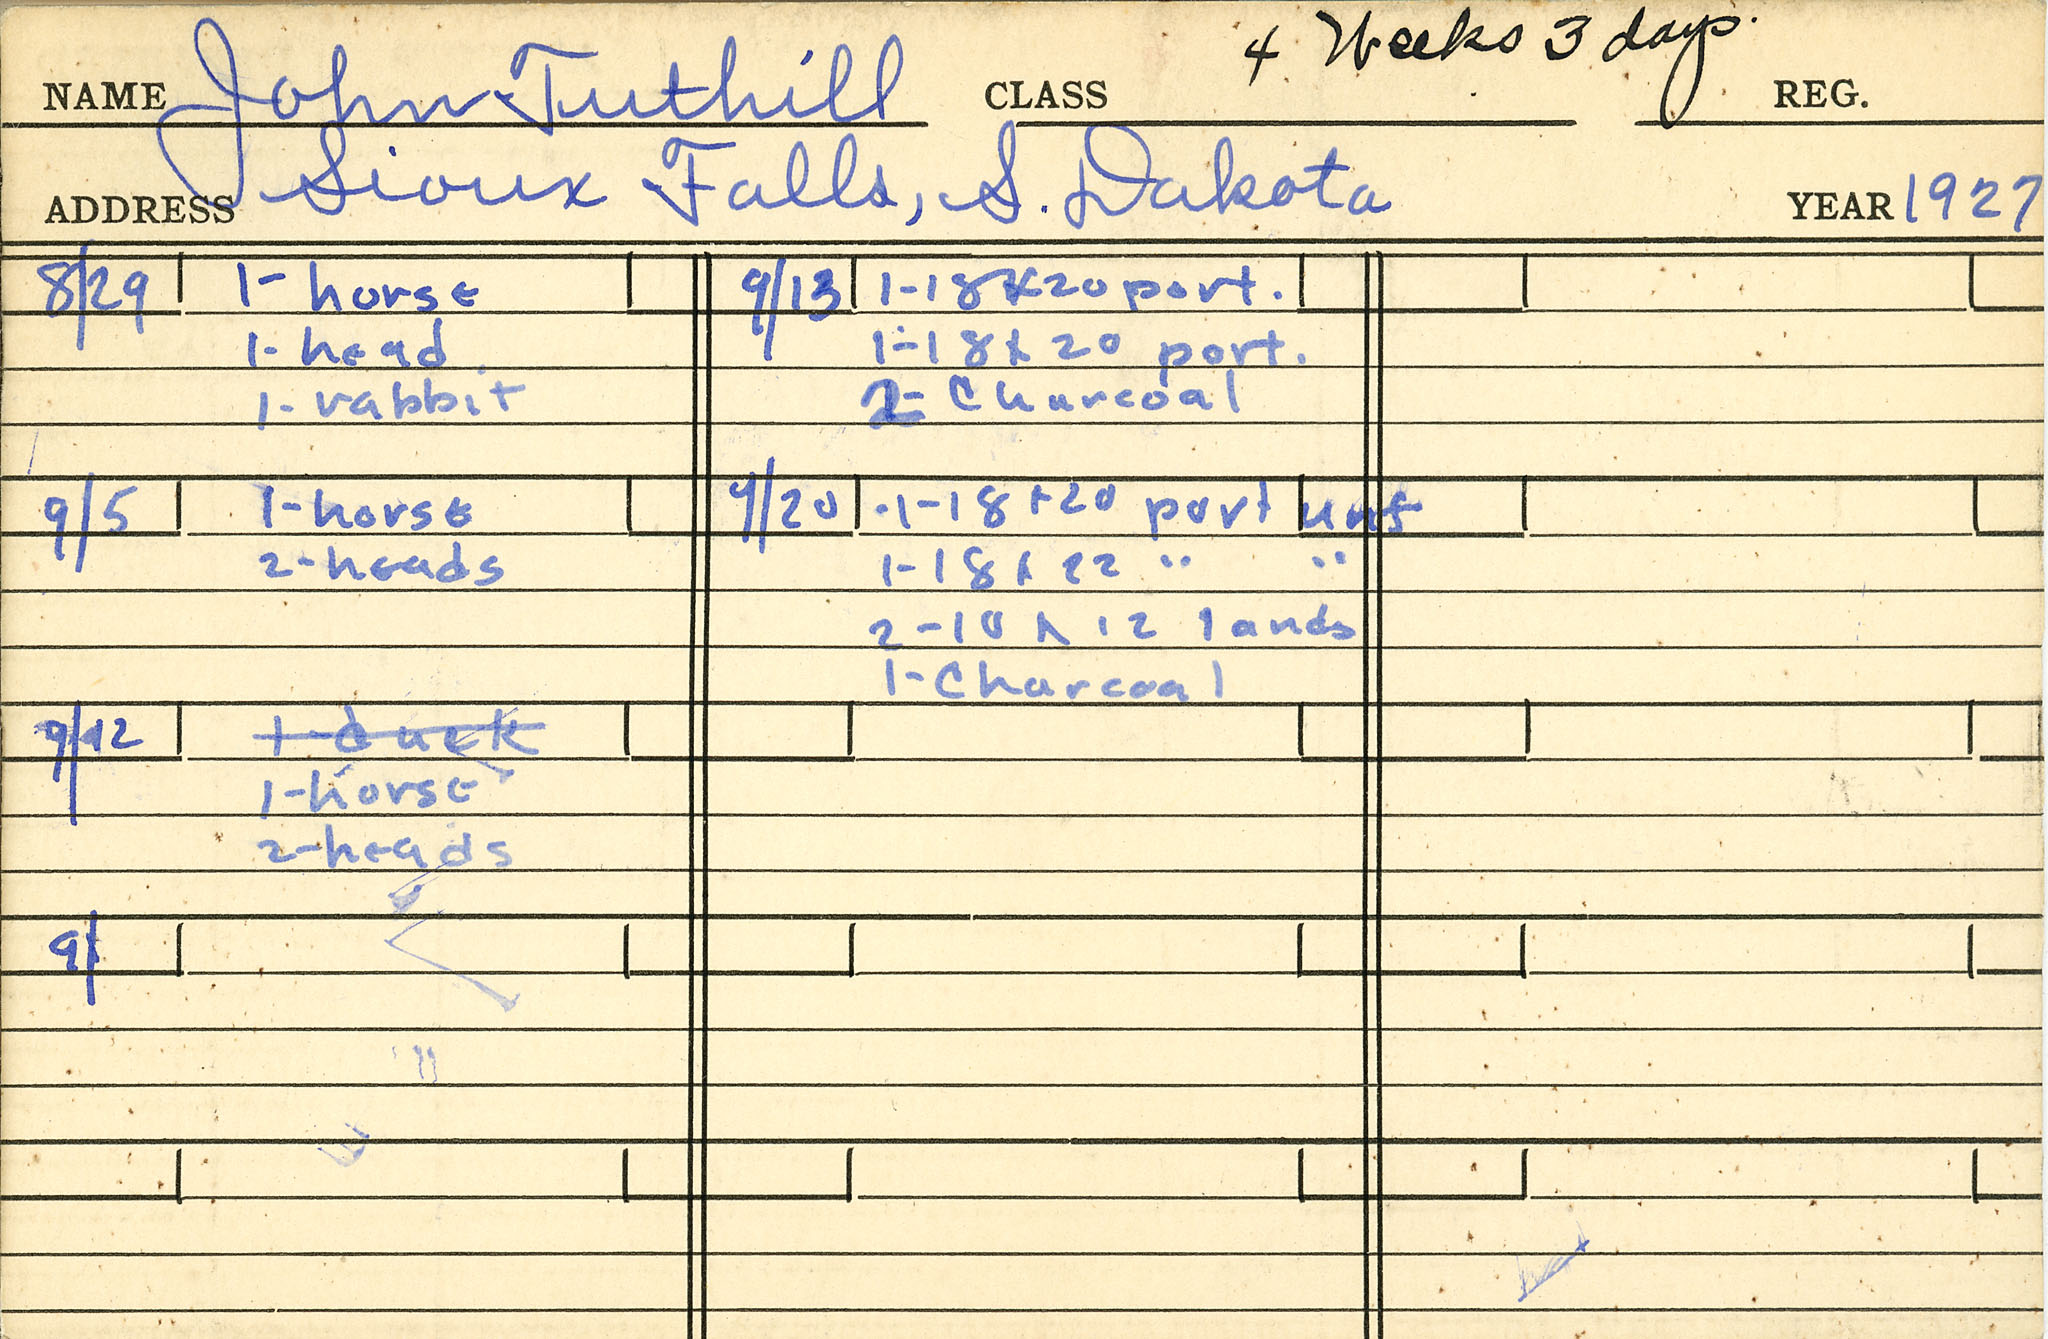 4 Weeks 3 days.
NAME John Tuthill CLASS REG.
ADDRESS Sioux Falls, S. Dakota YEAR 1927
8/29 1-horse
1-head
1-rabbit
9/5 1-horse
2-heads
9/12 1-duck
1-horse
2-heads
9/
9/13 1-18x20 port.
1-18x20 port.
2-Charcoal
9/20 1-18x20 port unf
1-18x22 " "
2-10x12 lands
1-Charcoal